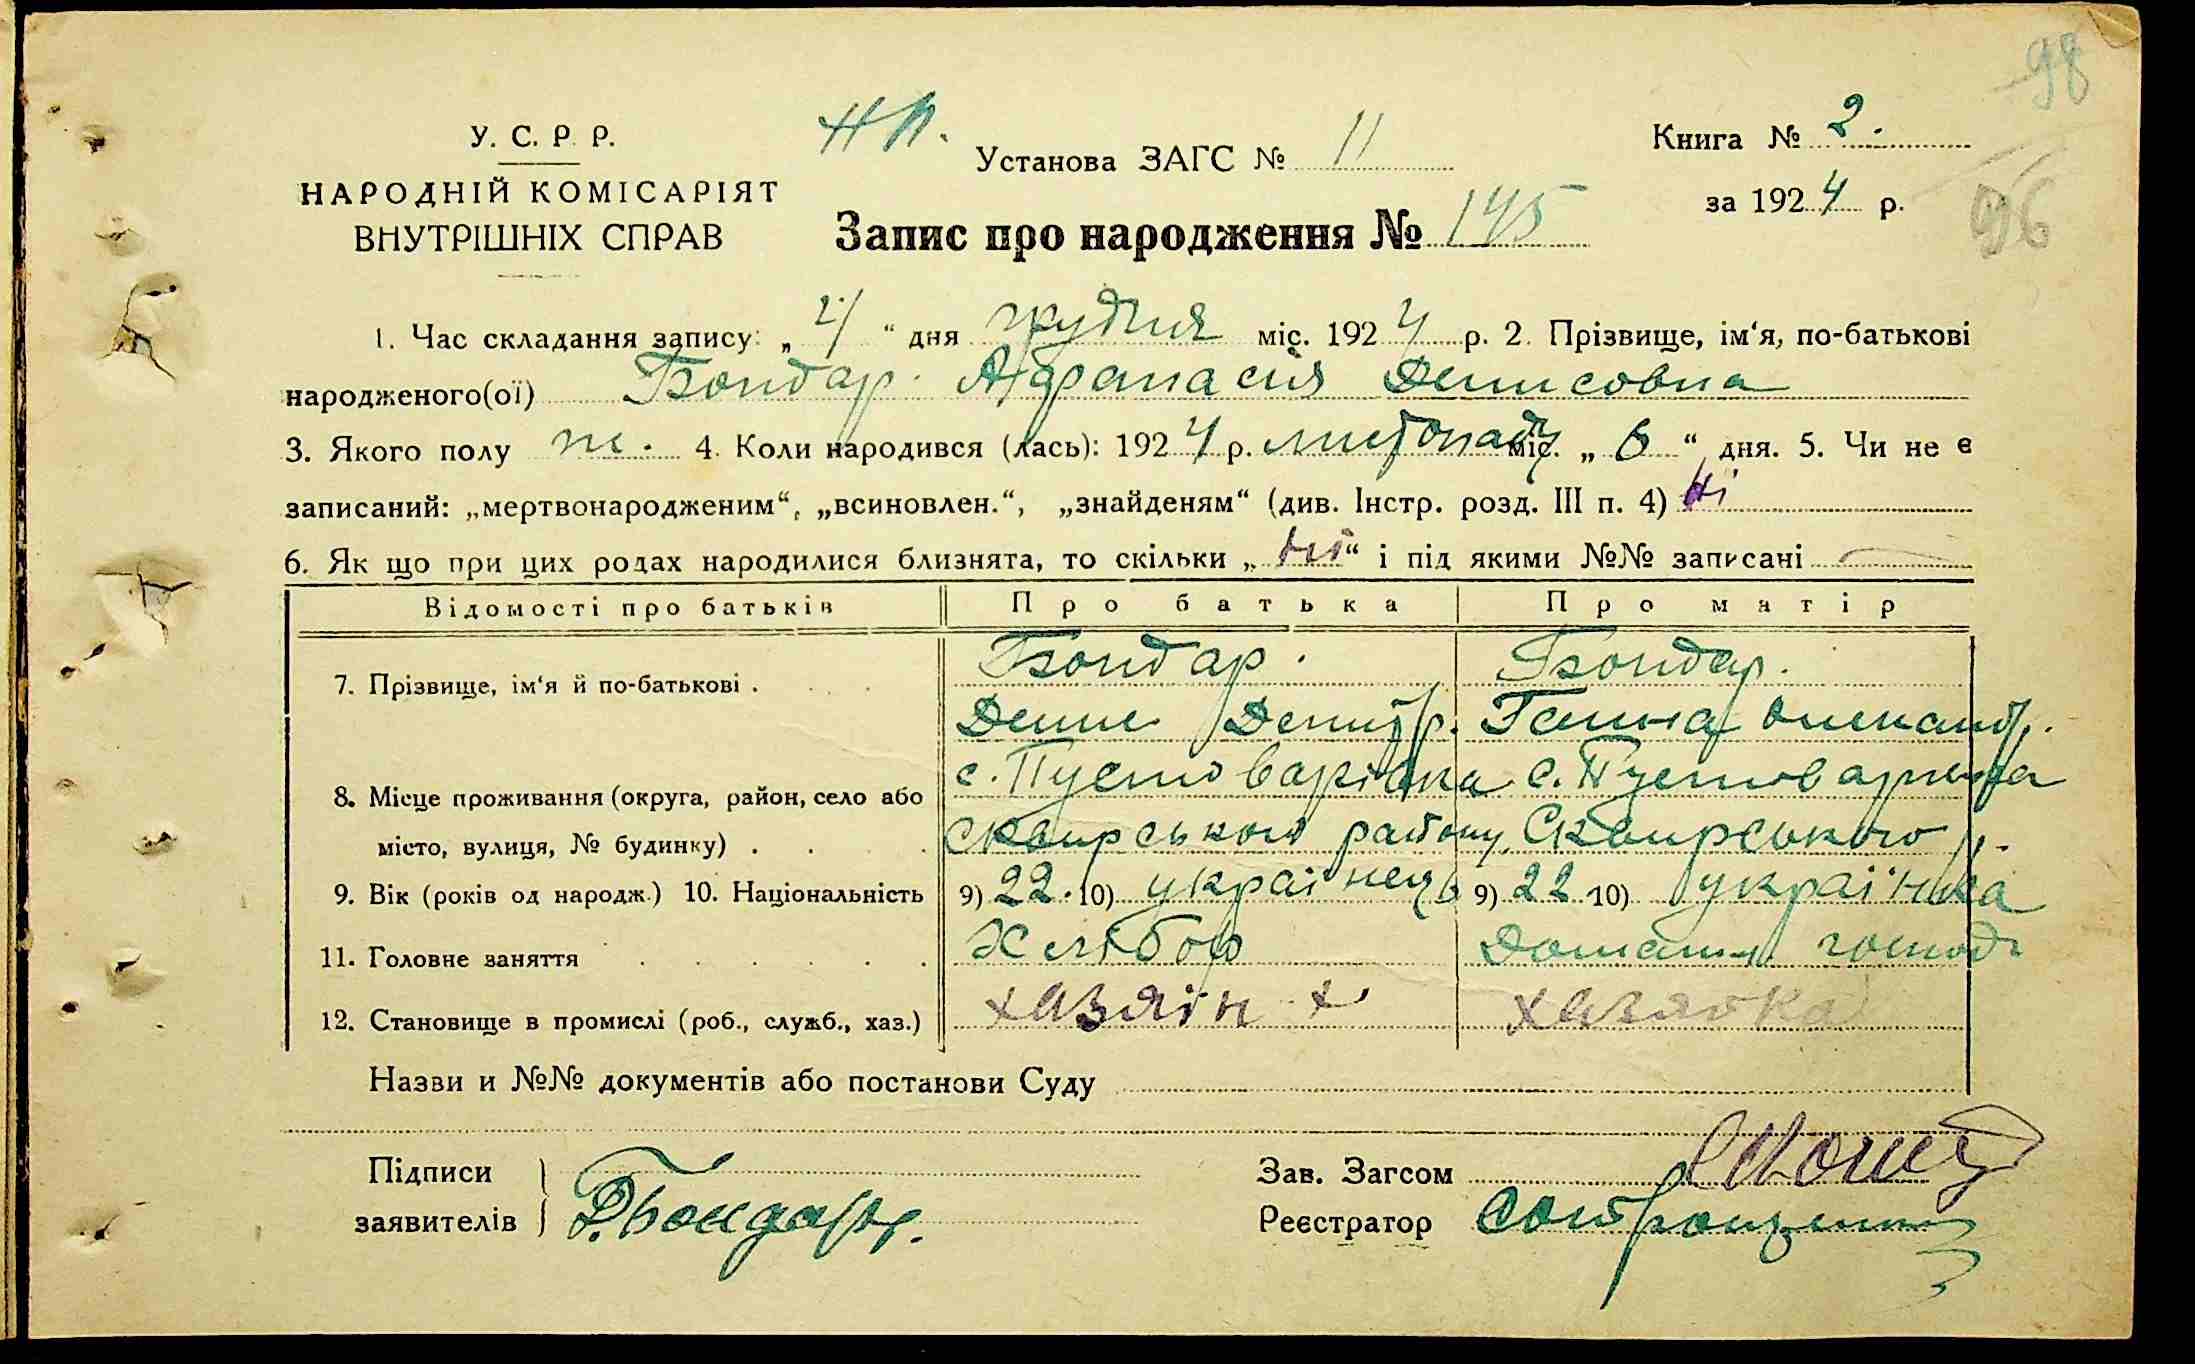 98
У. С. Р. Р.
НП.
Установа ЗАГС № 11
Книга № 2.
НАРОДНІЙ КОМІСАРІЯТ
ВНУТРІШНІХ СПРАВ
за 1924 р.
96
Запис про народження № 145
1. Час складання запису: „ 4 “ дня грудня міс. 1924 р. 2. Прізвище, ім‘я, по-батькові
народженого(ої) Бондар. Афанасія Денисовна
3. Якого полу ж. 4. Коли народився (лась): 1924 р. листопаду міс. „ 6 “ дня. 5. Чи не є
записаний: „мертвонародженим“, „всиновлен.“, „знайденям“ (див. Інстр. розд. III п. 4) Ні
6. Як що при цих родах народилися близнята, то скільки „ Ні “ і під якими №№ записані
Відомості про батьків Про батька Про матір
7. Прізвище, ім‘я й по-батькові . Бондар. Бондар.
Денис Ганна Олександр.
8. Місце проживання (округа, район, село або с. Пустоварівка с. Пустоварівка
місто, вулиця, № будинку) . Сквирського району Сквирського р.
9. Вік (років од народж.) 10. Національність 9) 22. 10) українець 9) 22 10) українка
11. Головне заняття Хлібор Домашн. господ
12. Становище в промислі (роб., служб., хаз.) хазяін х хазяйка
Назви и №№ документів або постанови Суду
Підписи
заявителів Д. Бондарь.
Зав. Загсом
Реєстратор